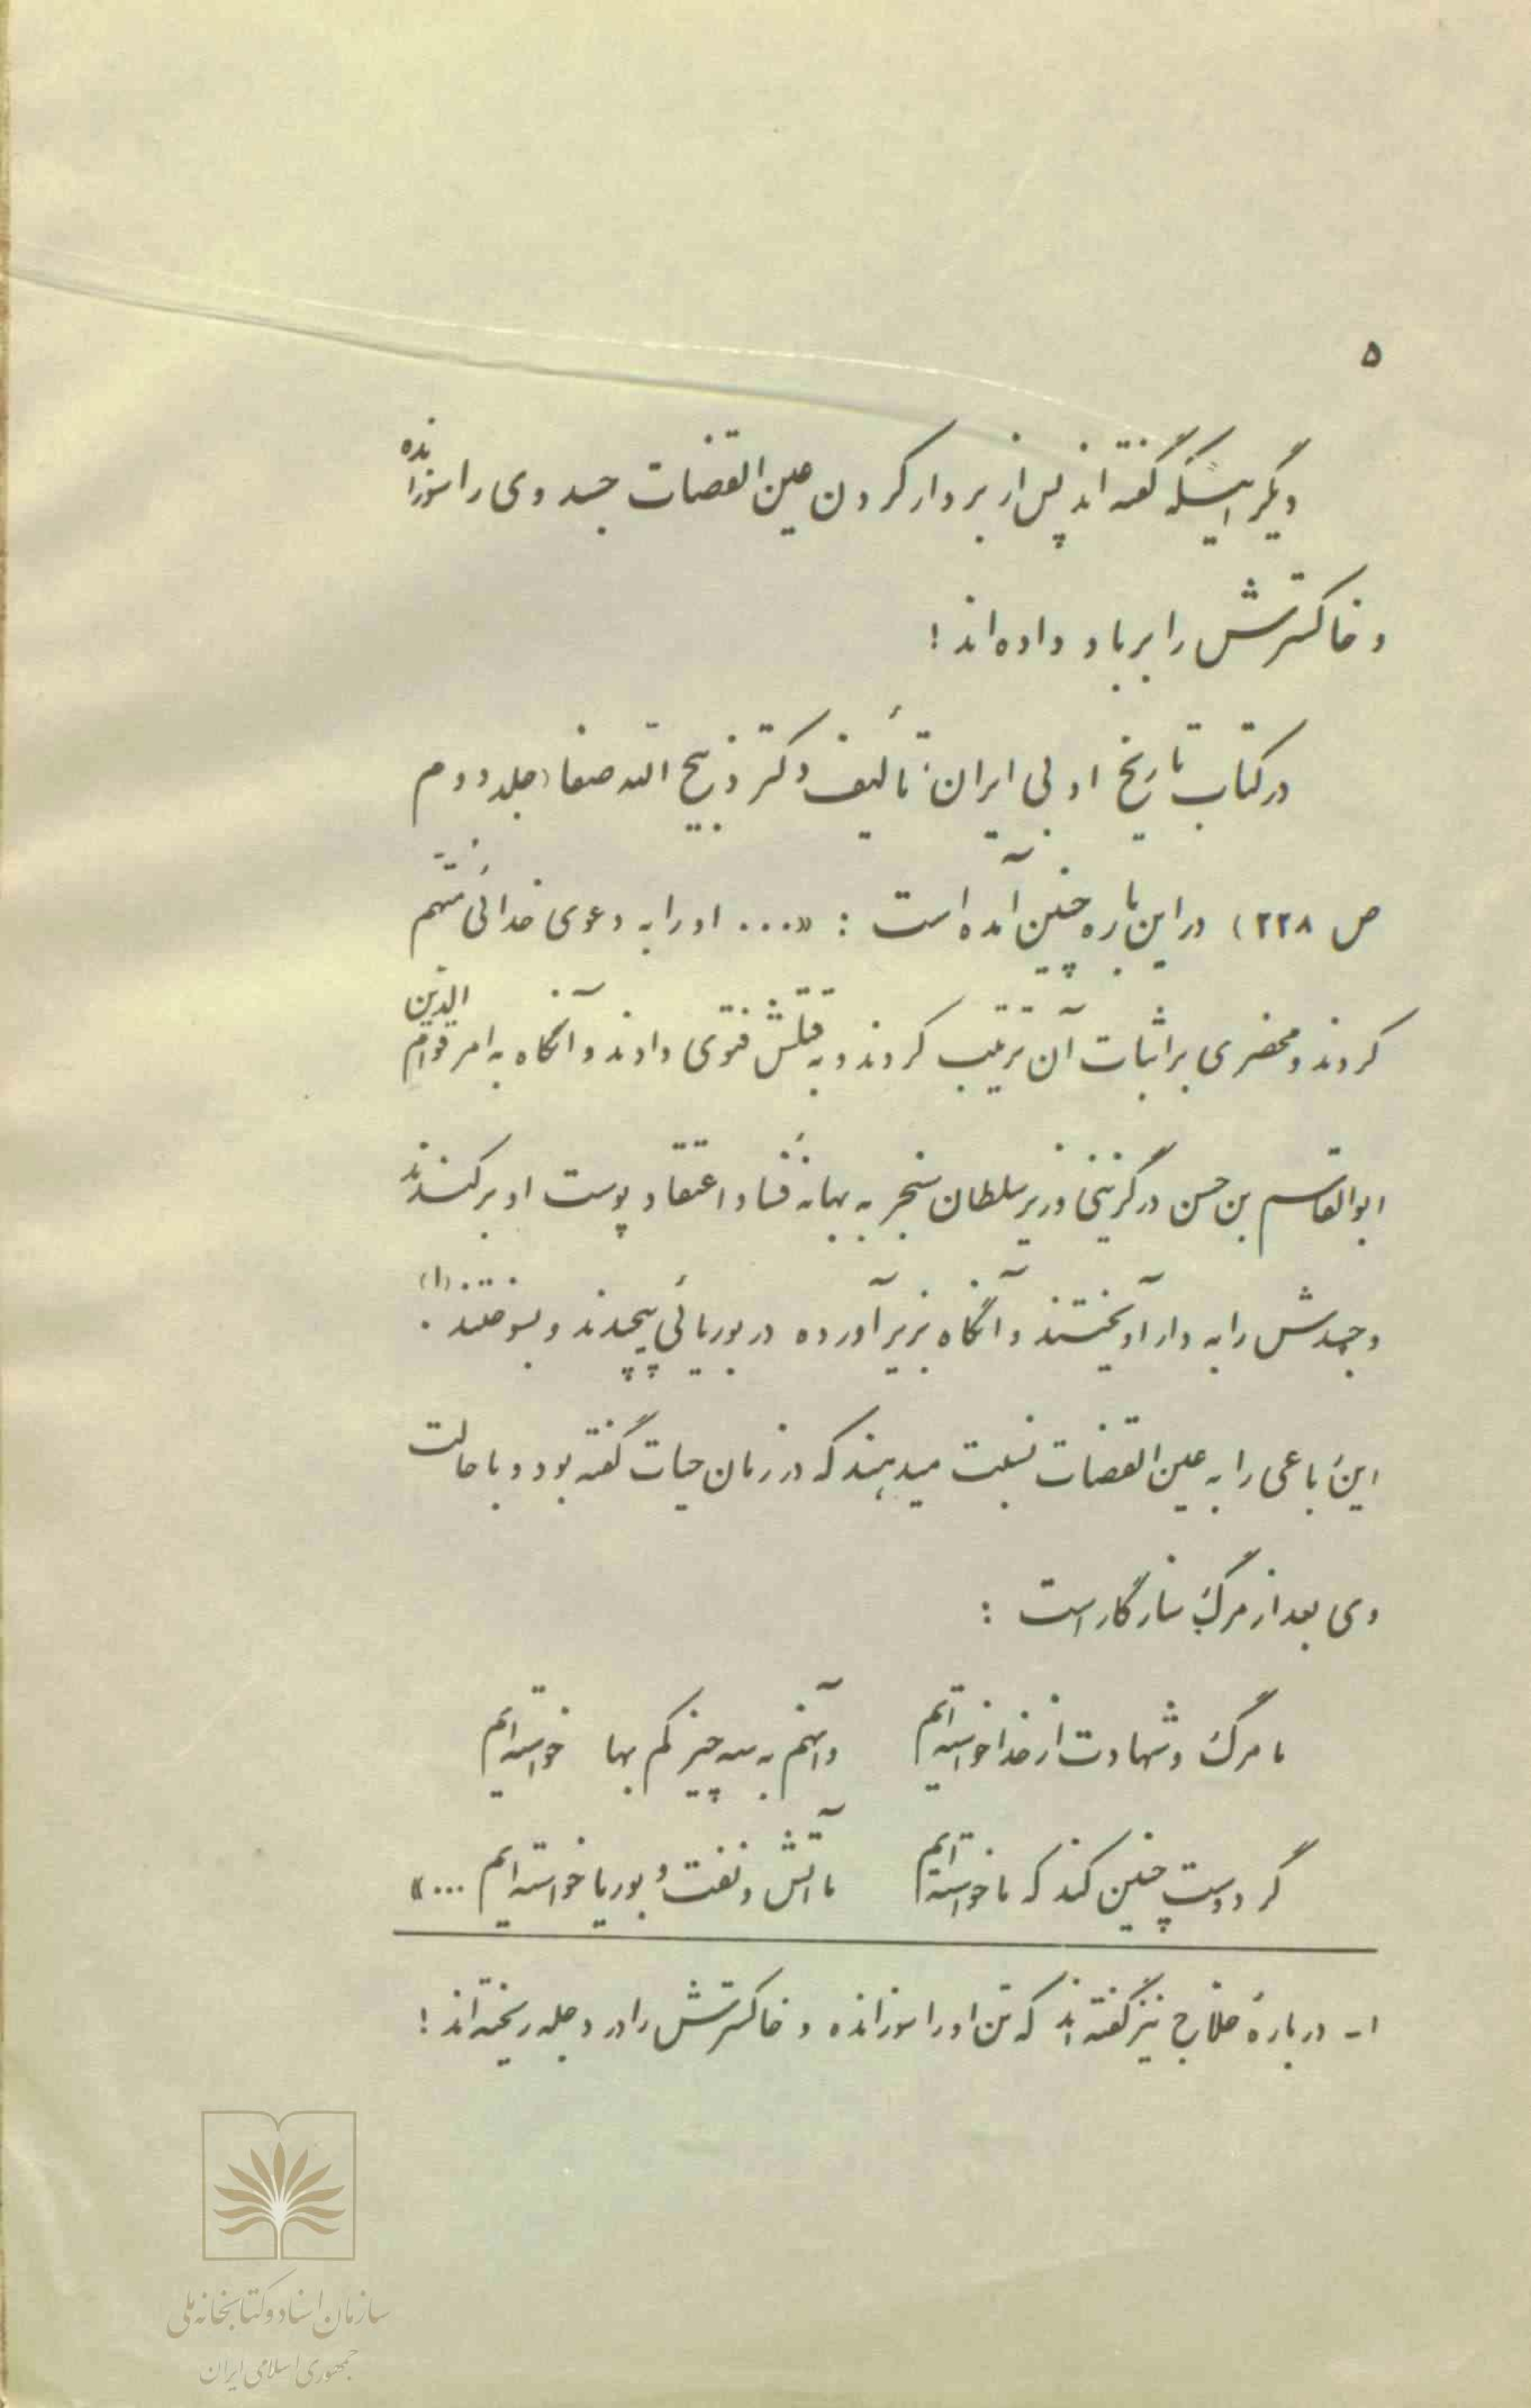 ۵
دیگر اینکه گفته‌اند پس از بردار کردن عین‌القضات جسد وی را سوزانده
و خاکسترش را بر باد داده‌اند!
در کتاب تاریخ ادبی ایران، تألیف دکتر ذبیح‌الله صفا (جلد دوم
ص ۲۲۸) در این باره چنین آمده است : «... او را به دعوی خدائی متهم
کردند و محضری بر اثبات آن ترتیب کردند و به قتلش فتوی دادند و آنگاه به امر قوام‌الدین
ابوالقاسم بن حسن درگزینی وزیر سلطان سنجر به بهانهٔ فساد اعتقاد پوست او برکندند
و جسدش را به دار آویختند و آنگاه بزیر آورده در بوریائی پیچیدند و بسوختند (۱).
این رباعی را به عین‌القضات نسبت میدهند که در زمان حیات گفته بود و با حالت
وی بعد از مرگ سازگار است :
ما مرگ و شهادت از خدا خواسته‌ایم وآنهم به سه چیز کم بها خواسته‌ایم
گر دوست چنین کند که ما خواسته‌ایم ما آتش و نفت و بوریا خواسته‌ایم ...»
۱- دربارهٔ حلاج نیز گفته‌اند که تن او را سوزانده و خاکسترش را در دجله ریخته‌اند!
سازمان اسناد و کتابخانه ملی
جمهوری اسلامی ایران